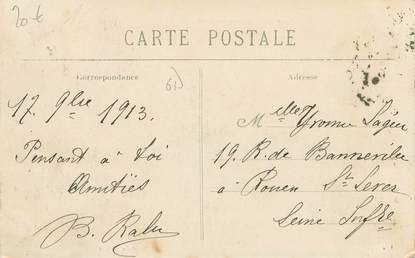 20 €
CARTE POSTALE
Correspondance
Adresse
61
17. 9bre 1913.
Pensant à toi
Amitiés
B. Ralu
Melle Yvonne
19. R. de
à Rouen St Sever
Seine Infre